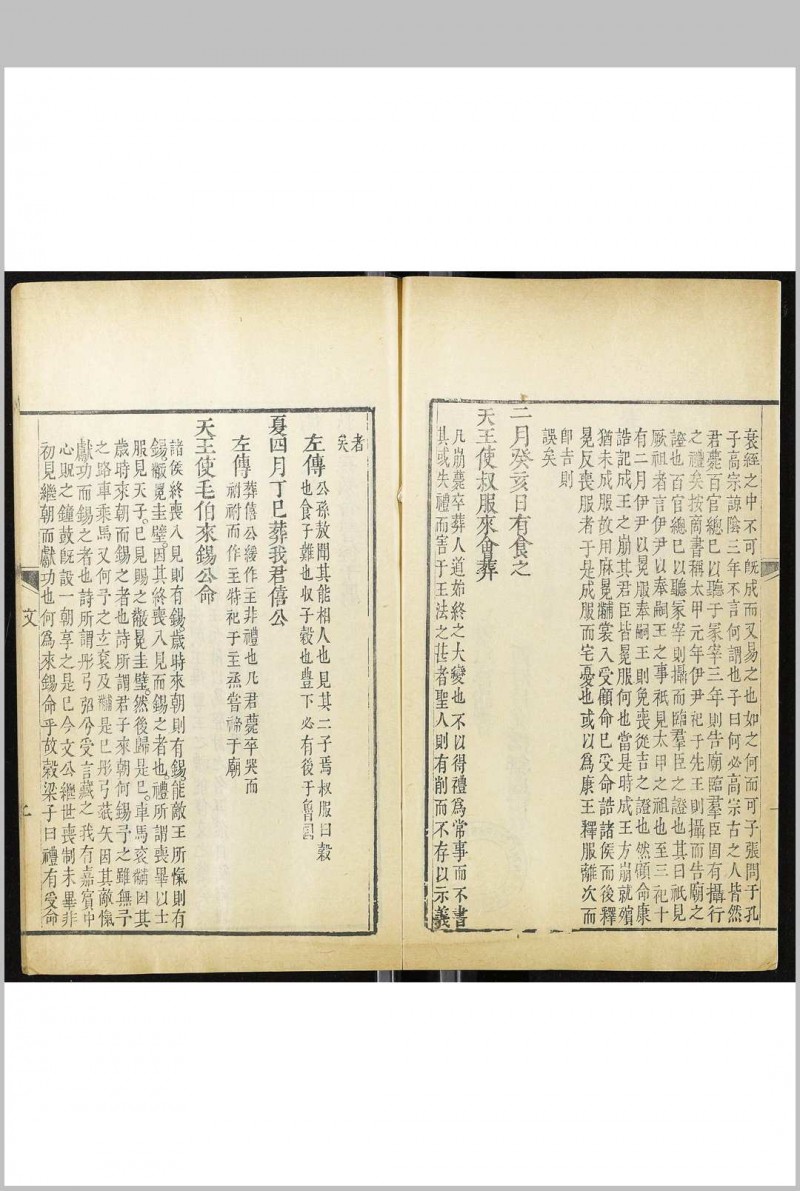 衰絰之中不可旣成而又易之也如之何而可子張問于孔
子高宗諒陰三年不言何謂也子曰何必高宗古之人皆然
君薨百官總巳以聽于冢宰三年則告廟臨羣臣固有攝行
之禮矣按商書稱太甲元年伊尹祀于先王則攝而告廟之
證也百官總巳以聽冢宰則攝而臨羣臣之證也其曰祇見
厥祖者言伊尹以奉嗣王之事祇見太甲之祖也至三祀十
有二月伊尹以冕服奉嗣王則免喪從吉之證也然顧命康
誥記成王之崩其君臣皆冕服何也當是時成王方崩就殯
猶未成服故用麻冕黼裳入受顧命巳受命誥諸侯而後釋
冕反喪服者于是成服而宅憂也或以爲康王釋服離次而
卽吉則
誤矣
二月癸亥日有食之
天王使叔服來會葬
凡崩薨卒葬人道始終之大變也不以得禮爲常事而不書
其或失禮而害于王法之甚者聖人則有削而不存以示義
者
矣
左傳 公孫敖聞其能相人也見其二子焉叔服曰穀
也食子難也収子穀也豊下必有後于魯國
夏四月丁巳葬我君僖公
左傳 葬僖公緩作主非禮也凡君薨卒哭而
祔祔而作主特祀于主烝嘗禘于廟
天王使毛伯來錫公命
諸侯終喪入見則有錫歲時來朝則有錫能敵王所愾則有
錫黻冕圭璧因其終喪入見而錫之者也禮所謂喪畢以士
服見天子。巳見賜之黻冕圭璧。然後歸是巳。車馬袞黼因其
歲時來朝而錫之者也詩所謂君子來朝何錫予之雖無予
之路車乘馬又何予之玄袞及黼是巳彤弓玈矢因其敵愾
獻功而錫之者也詩所謂彤弓弨兮受言藏之我有嘉賓中
心貺之鐘鼓旣設一朝享之是巳今文公繼世喪制未畢非
初見繼朝而獻功也何爲來錫命乎故穀梁子曰禮有受命
文